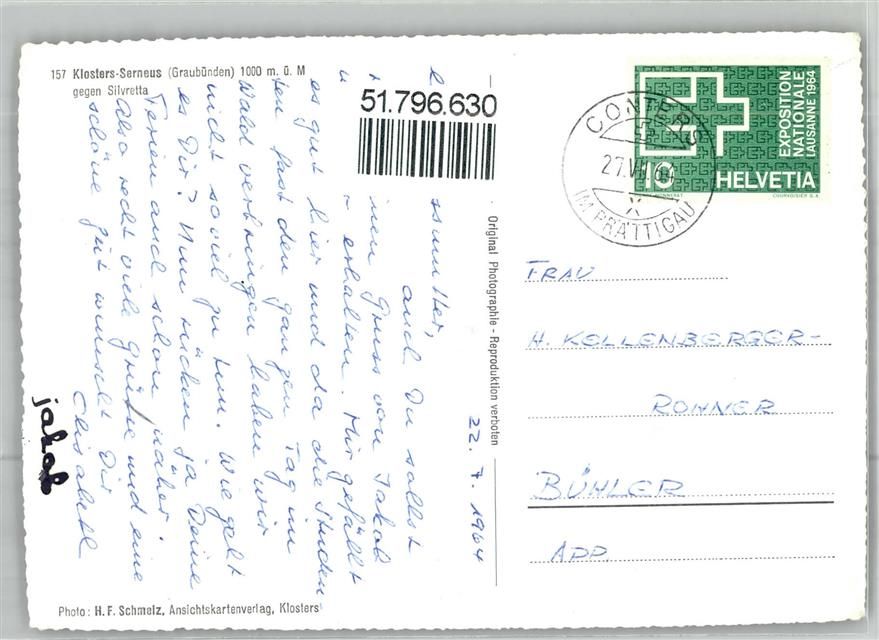 157 Klosters-Serneus (Graubünden) 1000 m. ü. M
gegen Silvretta
51.796.630
EXPOSITION
NATIONALE
LAUSANNE 1964
10 HELVETIA
COURVOISIER S.A.
CONTERS
27.VII.64
X
IM PRÄTTIGAU
Original Photographie - Reproduktion verboten
22. 7. 1964
auch Du sollst
Gruss von Jakob
erhalten. Mir gefällt
es gut hier und da die Stunden
fast den ganzen Tag im
Wald verbringen haben wir
nicht soviel zu tun. Wie geht
es Dir? Nun rücken ja Deine
Ferien auch schon näher.
Also recht viele Grüsse und eine
schöne Zeit wünscht Dir
Elisabeth
jakob
FRAU
H. KELLENBERGER-
ROHNER
BÜHLER
APP.
Photo: H. F. Schmelz, Ansichtskartenverlag, Klosters